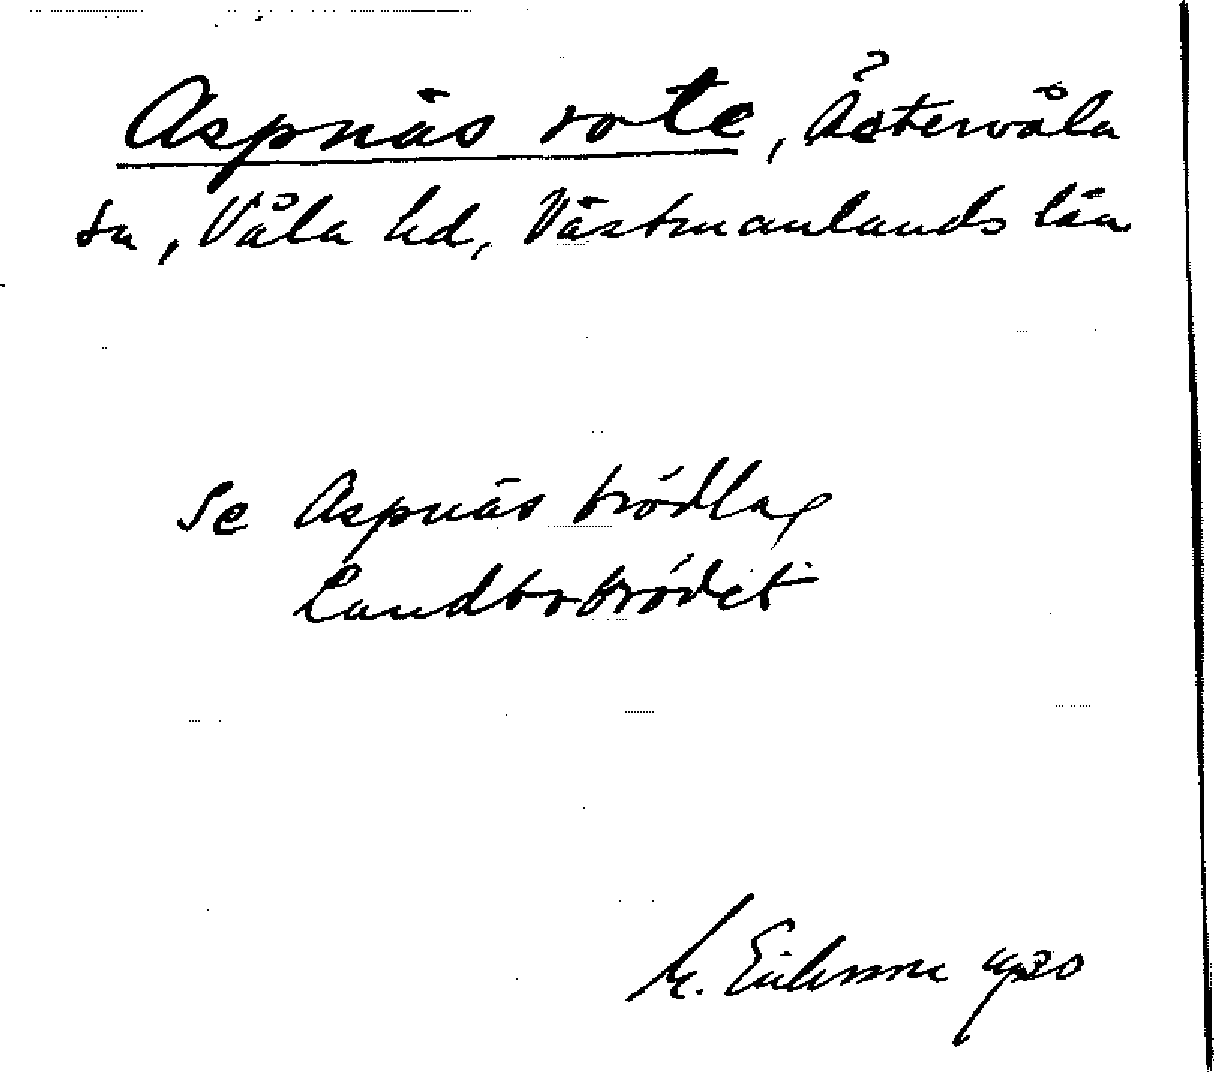 Aspnäs rote, Åstervåla
sn, Våla hd, Västmanlands län
Se Aspnäs brödlag
Landbobrödet
M. Eriksson 1930